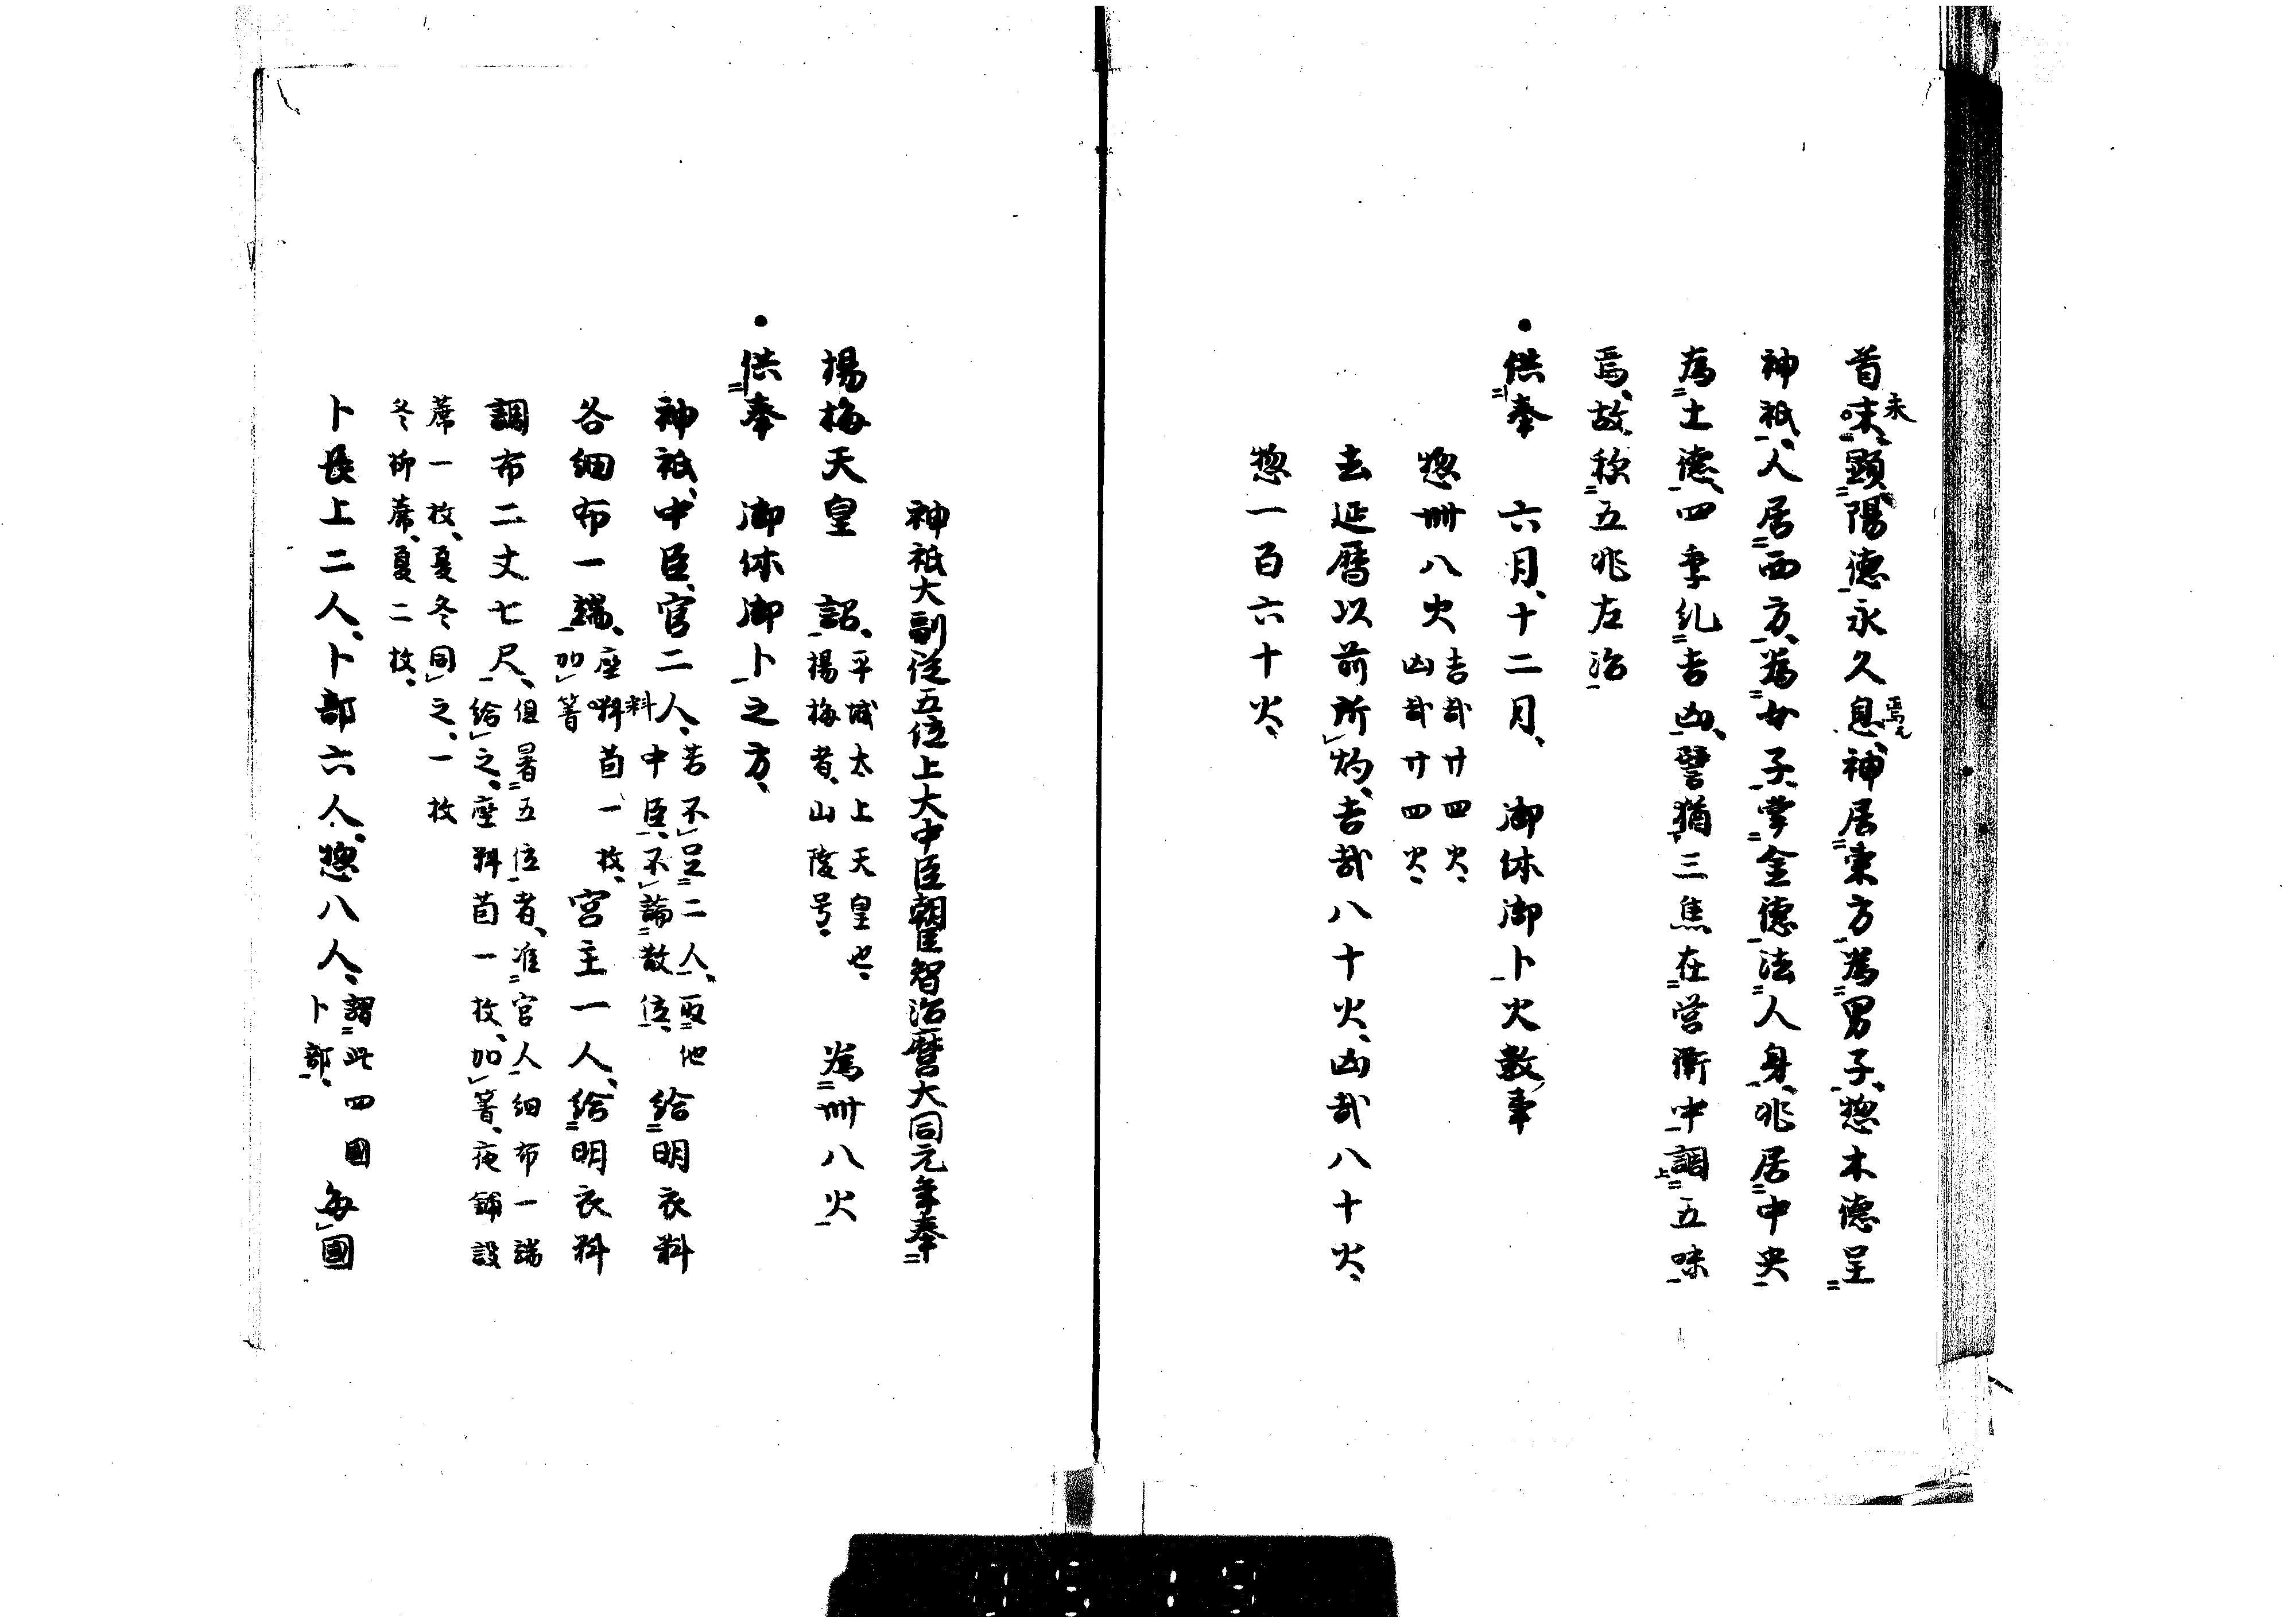 首味顕陽德永久息神居東方為男子惣木德呈
未
焉元
神祇人居西方為女子掌金德法人身兆居中央
為土德四季糺吉凶譬猶三焦在営衛中調五味
上
焉故称五兆左治
供奉 六月十二月 御体御卜火数事
惣卌八火 吉哉廿四火
凶哉廿四火
去延暦以前所灼吉哉八十火凶哉八十火
惣一百六十火
神祇大副従五位上大中臣朝臣智治麿大同元年奉
揚梅天皇 詔 平城太上天皇也
揚梅者山陵号 為卌八火
供奉 御体御卜之方
神祇中臣官二人 若不足二人取他
中臣不論散位 給明衣料
各細布一端 座料苫一枚
料
加箸 宮主一人給明衣料
調布二丈七尺 但署五位者准官人細布一端
給之座料苫一枚加箸夜鋪設
蓆一枚夏冬同之一枚
冬御蓆夏二枚
卜長上二人卜部六人惣八人 謂此四國
卜部 毎國